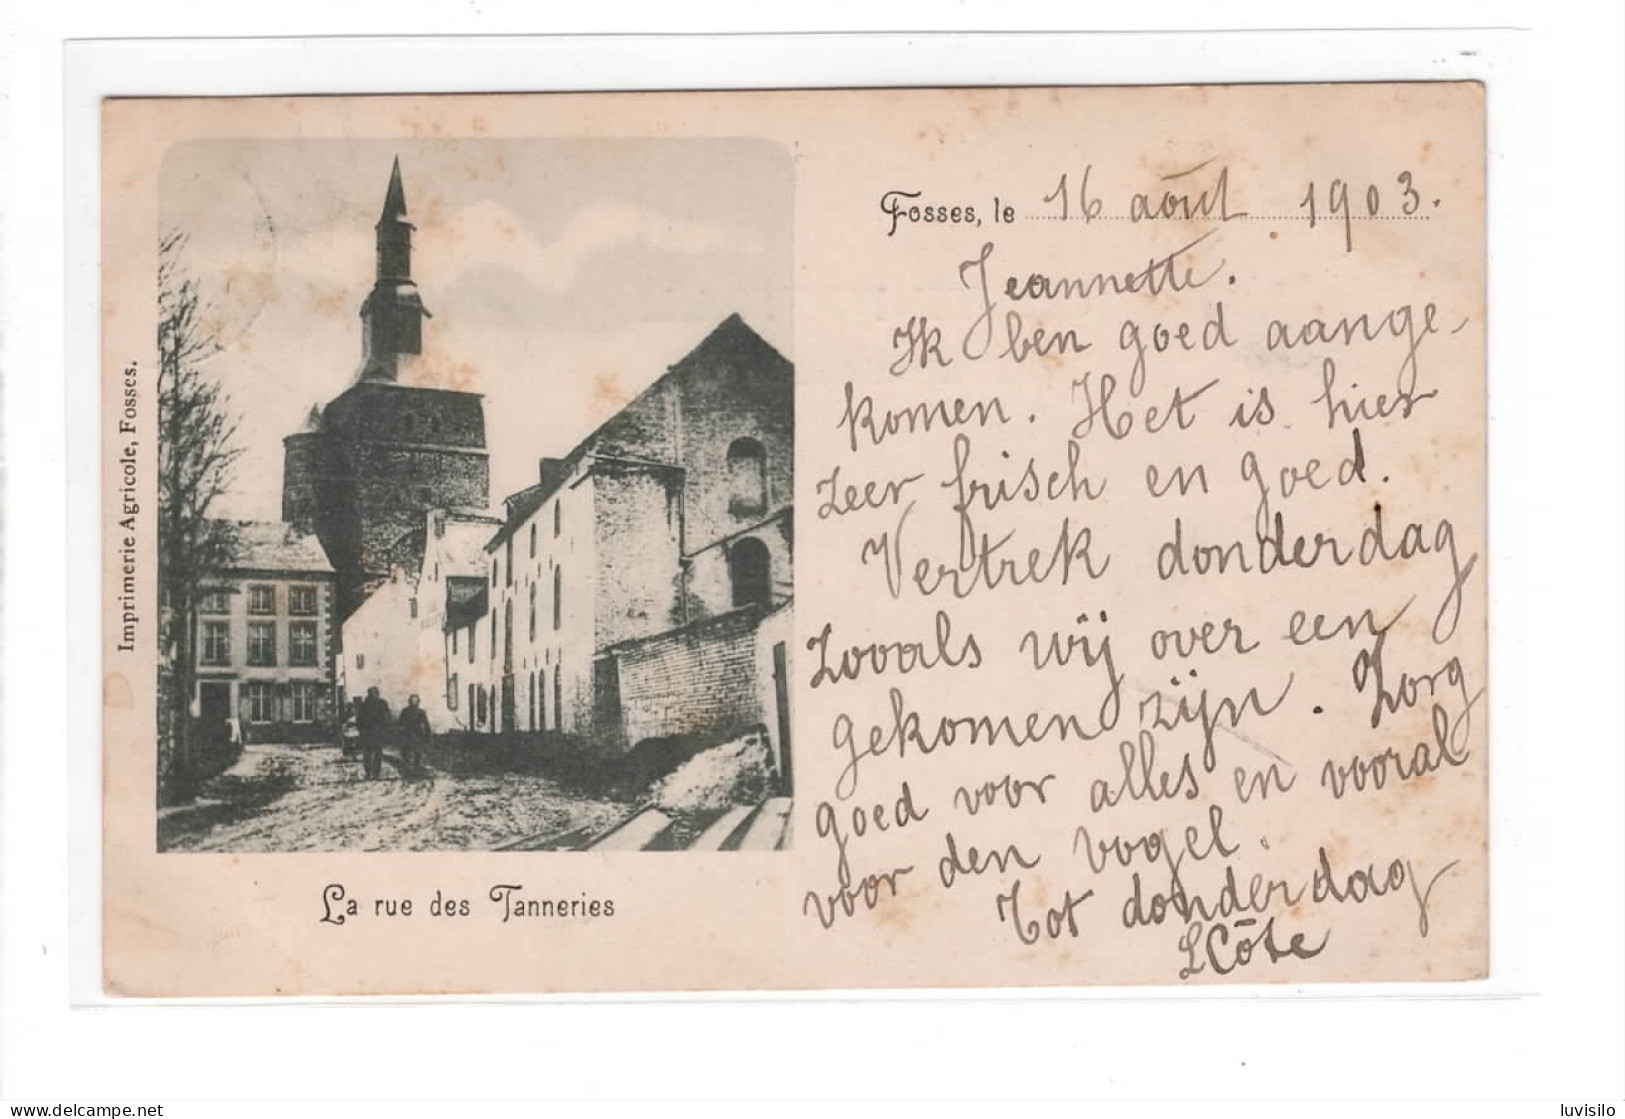 Imprimerie Agricole, Fosses.
La rue des Tanneries
Fosses, le 16 août 1903.
Jeannette.
Ik ben goed aange-
komen. Het is hier
zeer frisch en goed.
Vertrek donderdag
zooals wij over een
gekomen zijn. Zorg
goed voor alles en vooral
voor den vogel.
Tot donderdag
L Côte
delcampe.net
luvisilo